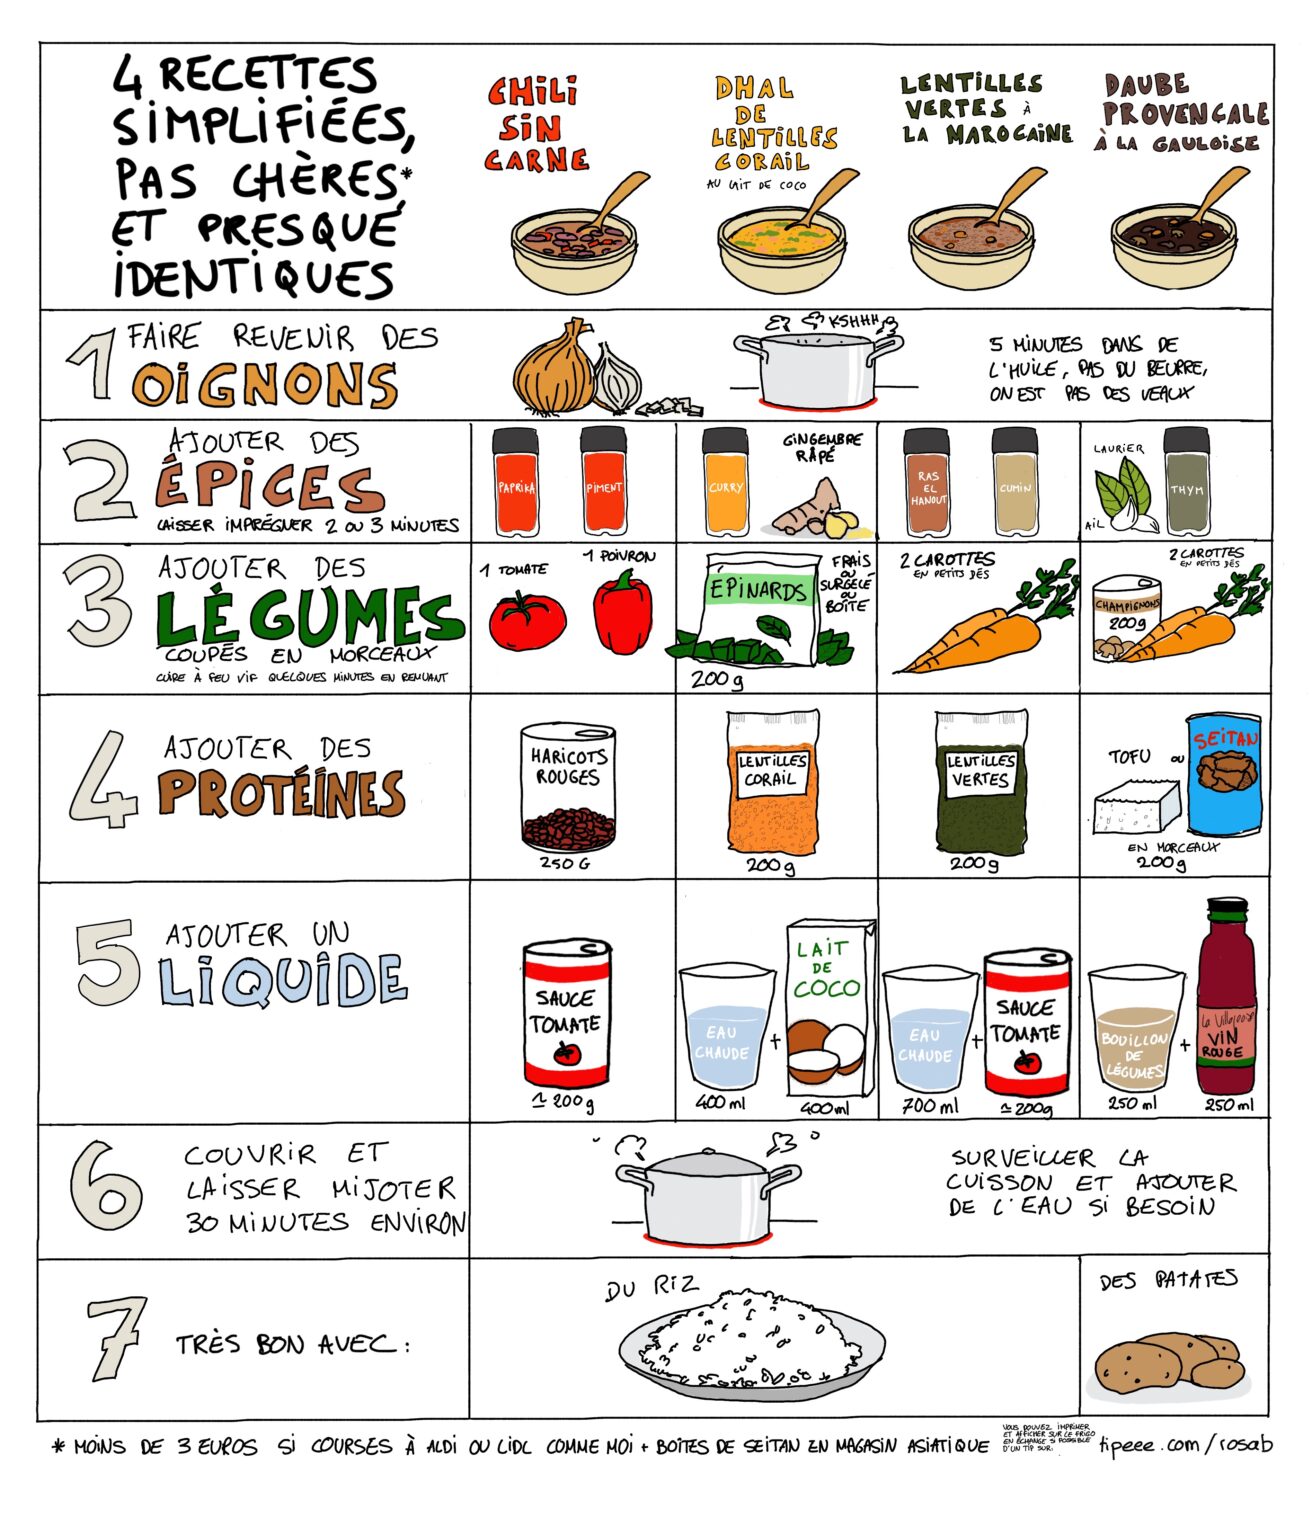 4 RECETTES
SIMPLIFIÉES,
PAS CHÈRES*,
ET PRESQUE
IDENTIQUES
CHILI
SIN
CARNE
DHAL
DE
LENTILLES
CORAIL
AU LAIT DE COCO
LENTILLES
VERTES À
LA MAROCAINE
DAUBE
PROVENCALE
À LA GAULOISE
1 FAIRE REVENIR DES
OIGNONS
KSHHH
5 MINUTES DANS DE
L'HUILE, PAS DU BEURRE,
ON EST PAS DES VEAUX
2 AJOUTER DES
ÉPICES
LAISSER IMPRÉGUER 2 OU 3 MINUTES
PAPRIKA
PIMENT
CURRY
GINGEMBRE
RÂPÉ
RAS
EL
HANOUT
CUMIN
LAURIER
AIL
THYM
3 AJOUTER DES
LÉGUMES
COUPÉS EN MORCEAUX
CUIRE À FEU VIF QUELQUES MINUTES EN REMUANT
1 TOMATE
1 POIVRON
EPINARDS
FRAIS
OU
SURGELÉ
OU
BOÎTE
200 g
2 CAROTTES
EN PETITS DÉS
2 CAROTTES
EN PETITS DÉS
CHAMPIGNONS
200g
4 AJOUTER DES
PROTÉÍNES
HARICOTS
ROUGES
250 G
LENTILLES
CORAIL
200g
LENTILLES
VERTES
200g
TOFU OU
SEITAN
EN MORCEAUX
200g
5 AJOUTER UN
LIQUIDE
SAUCE
TOMATE
≃ 200g
EAU
CHAUDE
400 ml
+
LAIT
DE
COCO
400ml
EAU
CHAUDE
700 ml
+
SAUCE
TOMATE
≃ 200g
BOUILLON
DE
LÉGUMES
250 ml
+
La Villageoise
VIN
ROUGE
250 ml
6 COUVRIR ET
LAISSER MIJOTER
30 MINUTES ENVIRON
SURVEILLER LA
CUISSON ET AJOUTER
DE L'EAU SI BESOIN
7 TRÈS BON AVEC :
DU RIZ
DES PATATES
* MOINS DE 3 EUROS SI COURSES À ALDI OU LIDL COMME MOI + BOÎTES DE SEITAN EN MAGASIN ASIATIQUE
VOUS POUVEZ IMPRIMER
ET AFFICHER SUR LE FRIGO
EN ÉCHANGE SI POSSIBLE
D'UN TIP SUR:
tipeee.com/rosab